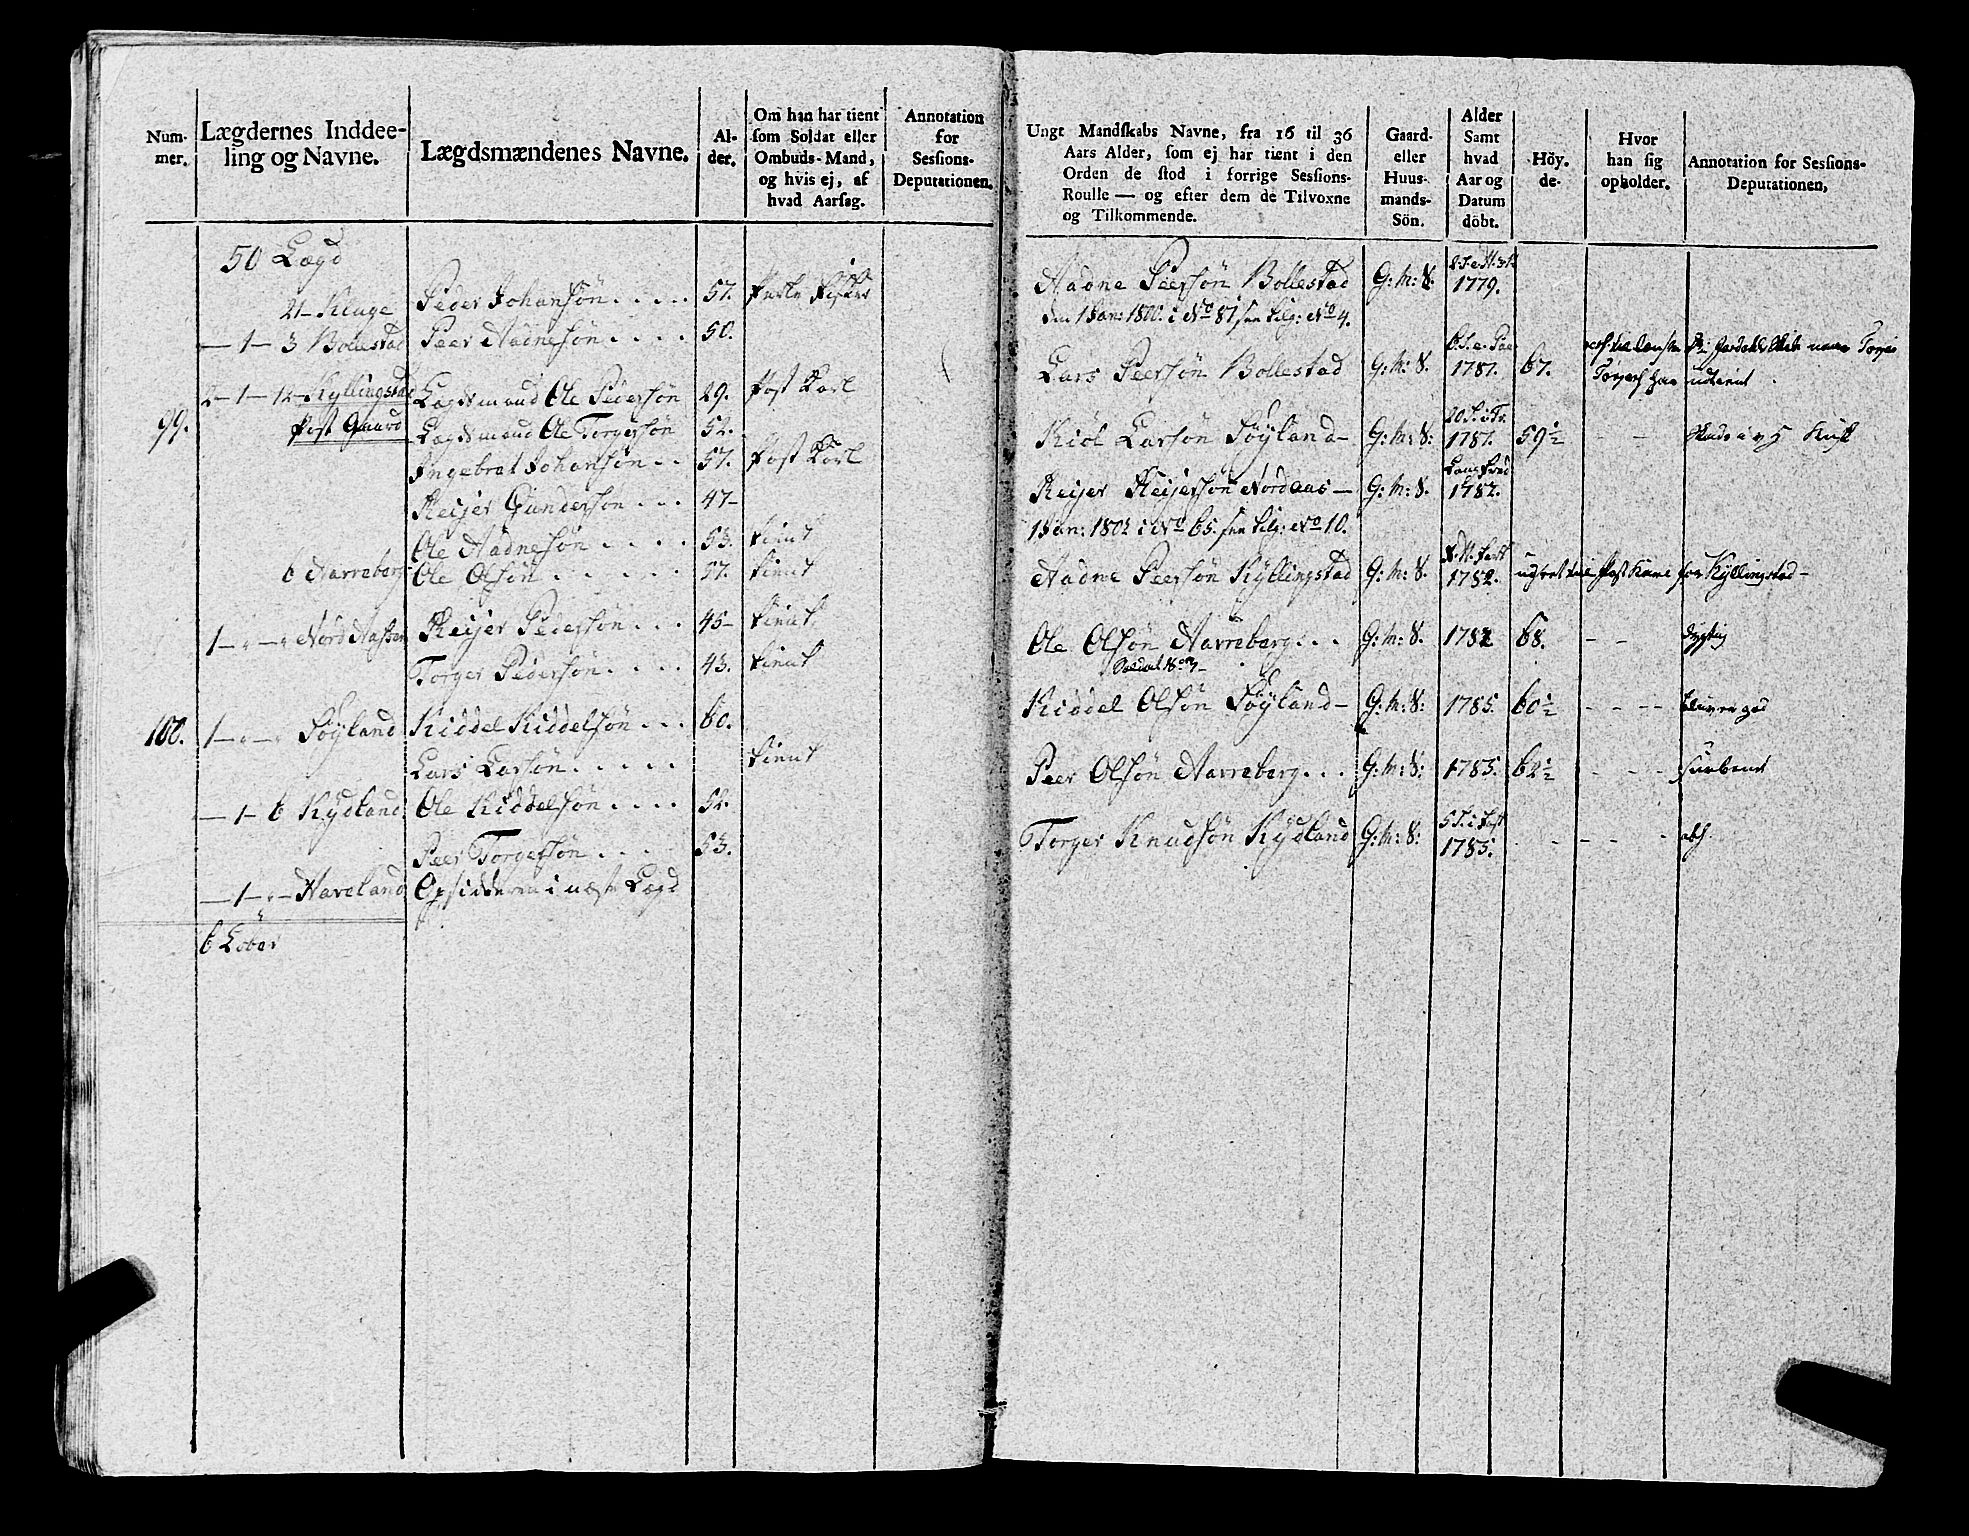 Num-
mer.
Lægdernes Inddee-
ling og Navne.
Lægdsmændenes Navne.
Al-
der.
Om han har tient
som Soldat eller
Ombuds-Mand,
og hvis ej, af
hvad Aarsag.
Annotation
for
Sessions-
Deputationen.
50 Lægd
21 - Kluge Peder Johansøn . . . . 57.
— 1 — 3 Bollestad Peer Aadnesøn . . . . 50.
2 — 1 — 12 Kyllingstad Lægdsmand Ole Pedersøn 29. Post Karl
99. Post Gaard Lægdsmand Ole Torgersøn 52.
Ingebret Johansøn . . 57. Post Karl
Reijer Gundersøn . . . 47 —
Ole Aadnesøn . . . . 53. tient
6 Narreberg Ole Olsøn . . . . . 57. tient
1 — " — " Nord Aassen Reijer Pedersøn . . . 45 — tient
Torger Pedersøn . . . . 43. tient
100. 1 — " — " Søyland Kiddel Kiddelsøn . . . 60.
Lars Larsøn . . . . . tient
— 1 — 6 Kydland Ole Kiddelsøn . . . . 52.
Peer Torgersøn . . . . 53.
— 1 — " — Haveland Opsidderen i næste Lægd
6 Lober
Ungt Mandskabs Navne, fra 16 til 36
Aars Alder, som ej har tient i den
Orden de stod i forrige Sessions-
Roulle — og efter dem de Tilvoxne
og Tilkommende.
Gaard-
eller
Huus-
mands-
Sön.
Alder
Samt
hvad
Aar og
Datum
döbt.
Höy.
de.
Hvor
han sig
opholder.
Annotation for Sessions-
Deputationen,
Aadne Peersøn Bollestad G: M: S. 1779.
den 1 Jan: 1800. i No 81 see tilg: No 4.
Lars Peersøn Bollestad G: M: S. 1781. 67.
Kiöl Larsøn Søyland — G: M: S: 20. S. i Tr. 1781. 59½ — —
Reijer Reijersøn Nordaas — G: M: S. 1782.
1 Jan: 1802 i No 65. see tilg: No 10.
Aadne Peersøn Kyllingstad G: M: S. 1782. udsat til Post Karl for Kyllingstad —
Ole Olsøn Narreberg . . G: M: S. 1782 68. — — dygtig
Kiddel Olsøn Søyland — G: M: S: 1785. 60½ — — —
Peer Olsøn Narreberg . . . G: M: S: 1785. 62½ — — —
Torger Knudsøn Kydland G: M: S: 5 S. i Fast 1785. — — —